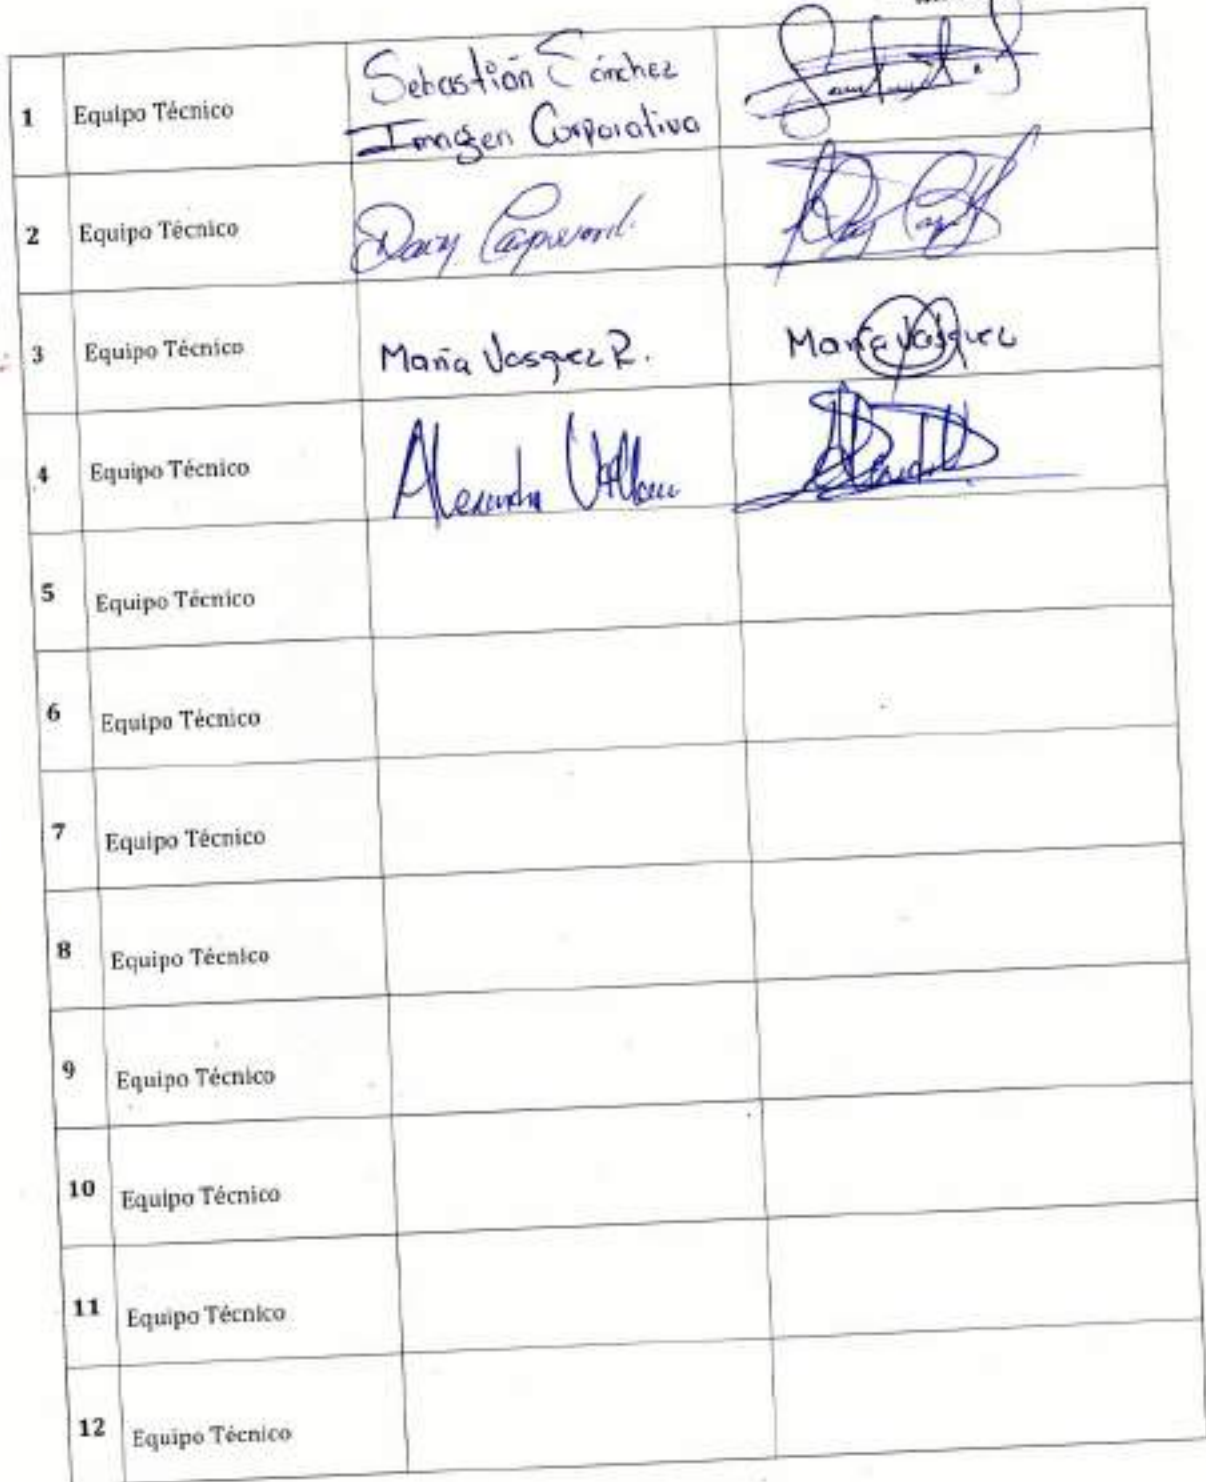 1 Equipo Técnico Sebastián Sánchez
Imagen Corporativa
2 Equipo Técnico
3 Equipo Técnico María Vasquez R. María Vasquez
4 Equipo Técnico Alexandra
5 Equipo Técnico
6 Equipo Técnico
7 Equipo Técnico
8 Equipo Técnico
9 Equipo Técnico
10 Equipo Técnico
11 Equipo Técnico
12 Equipo Técnico